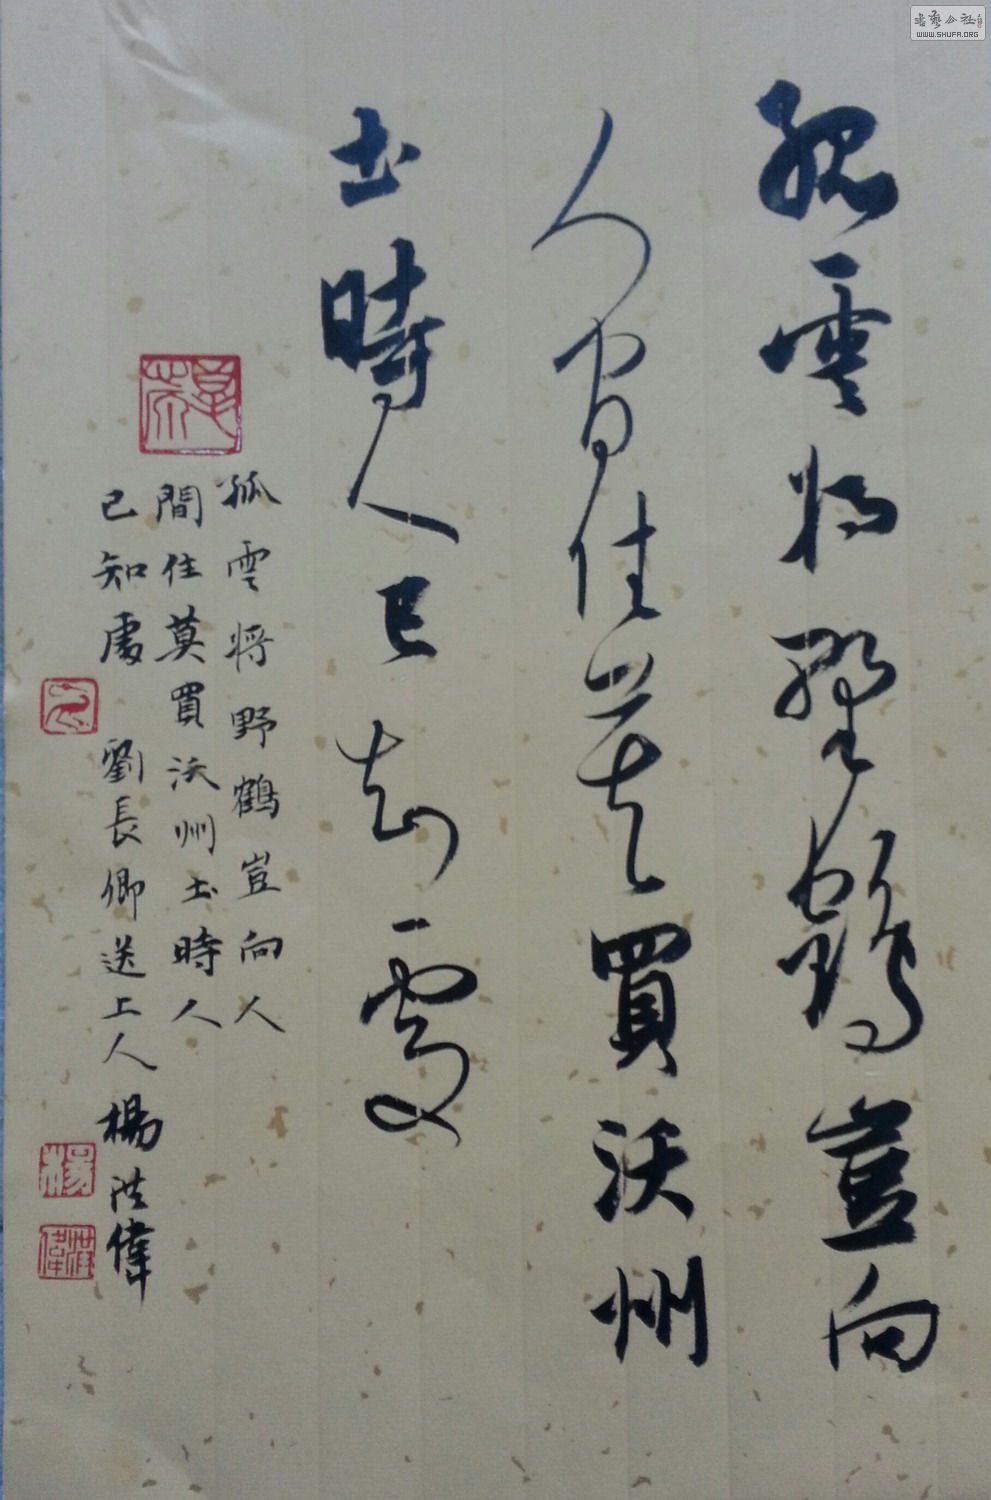 孤雲将野鶴豈向
人间住莫買沃州
土時人已知處
孤雲将野鶴豈向人
間住莫買沃州土時人
已知處 劉長卿送上人 楊洪偉
楊
洪偉
書藝公社
WWW.SHUFA.ORG